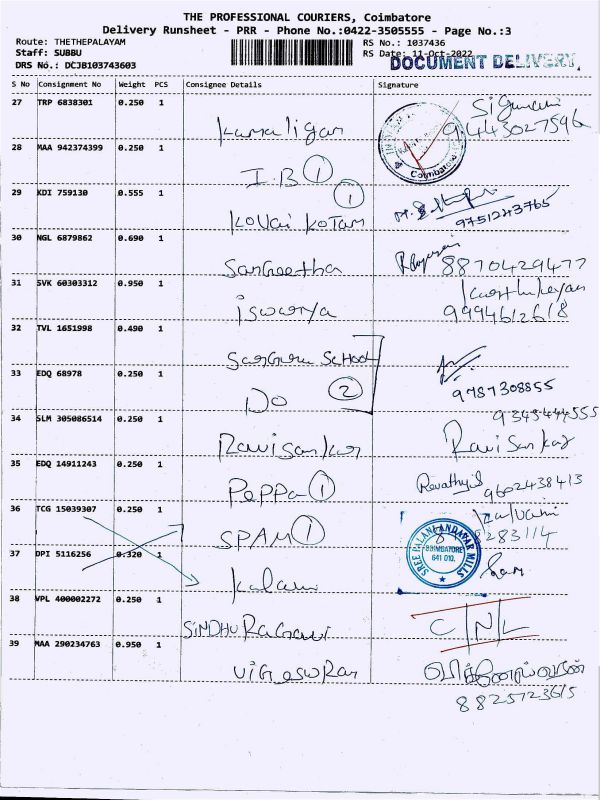 THE PROFESSIONAL COURIERS, Coimbatore
Delivery Runsheet - PRR - Phone No.:0422-3505555 - Page No.:3
Route: THETHEPALAYAM RS No.: 1037436
Staff: SUBBU RS Date: 11-Oct-2022
DRS No.: DCJB103743603 DOCUMENT DELIVERY.
S No Consignment No Weight PCS Consignee Details Signature
27 TRP 6838301 0.250 1
Coimbatore
28 MAA 942374399 0.250 1
I.B 1
29 KDI 759130 0.555 1 1
KOVAi KOTAM 9751243765
30 NGL 6879862 0.690 1
Sangeetha 8870429477
31 SVK 60303312 0.950 1 Karthikeyan
iswarya 9994612618
32 TVL 1651998 0.490 1
SCHOOL
33 EDQ 68978 0.250 1
9787308855
DO 2
34 SLM 305086514 0.250 1
Ravisankar Ravi Sankar
35 EDQ 14911243 0.250 1
PePPa 1 9602438413
36 TCG 15039307 0.250 1
SPAM 1 SREE PALANI ANDAVAR MILLS
COIMBATORE
641 010.
37 DPI 5116256 0.320 1
Kalani Ram
38 VPL 400002272 0.250 1
SINDHU Ragavi C/N/L
39 MAA 290234763 0.950 1
VIGneswRan விக்னேஸ்வரன்
8825123615